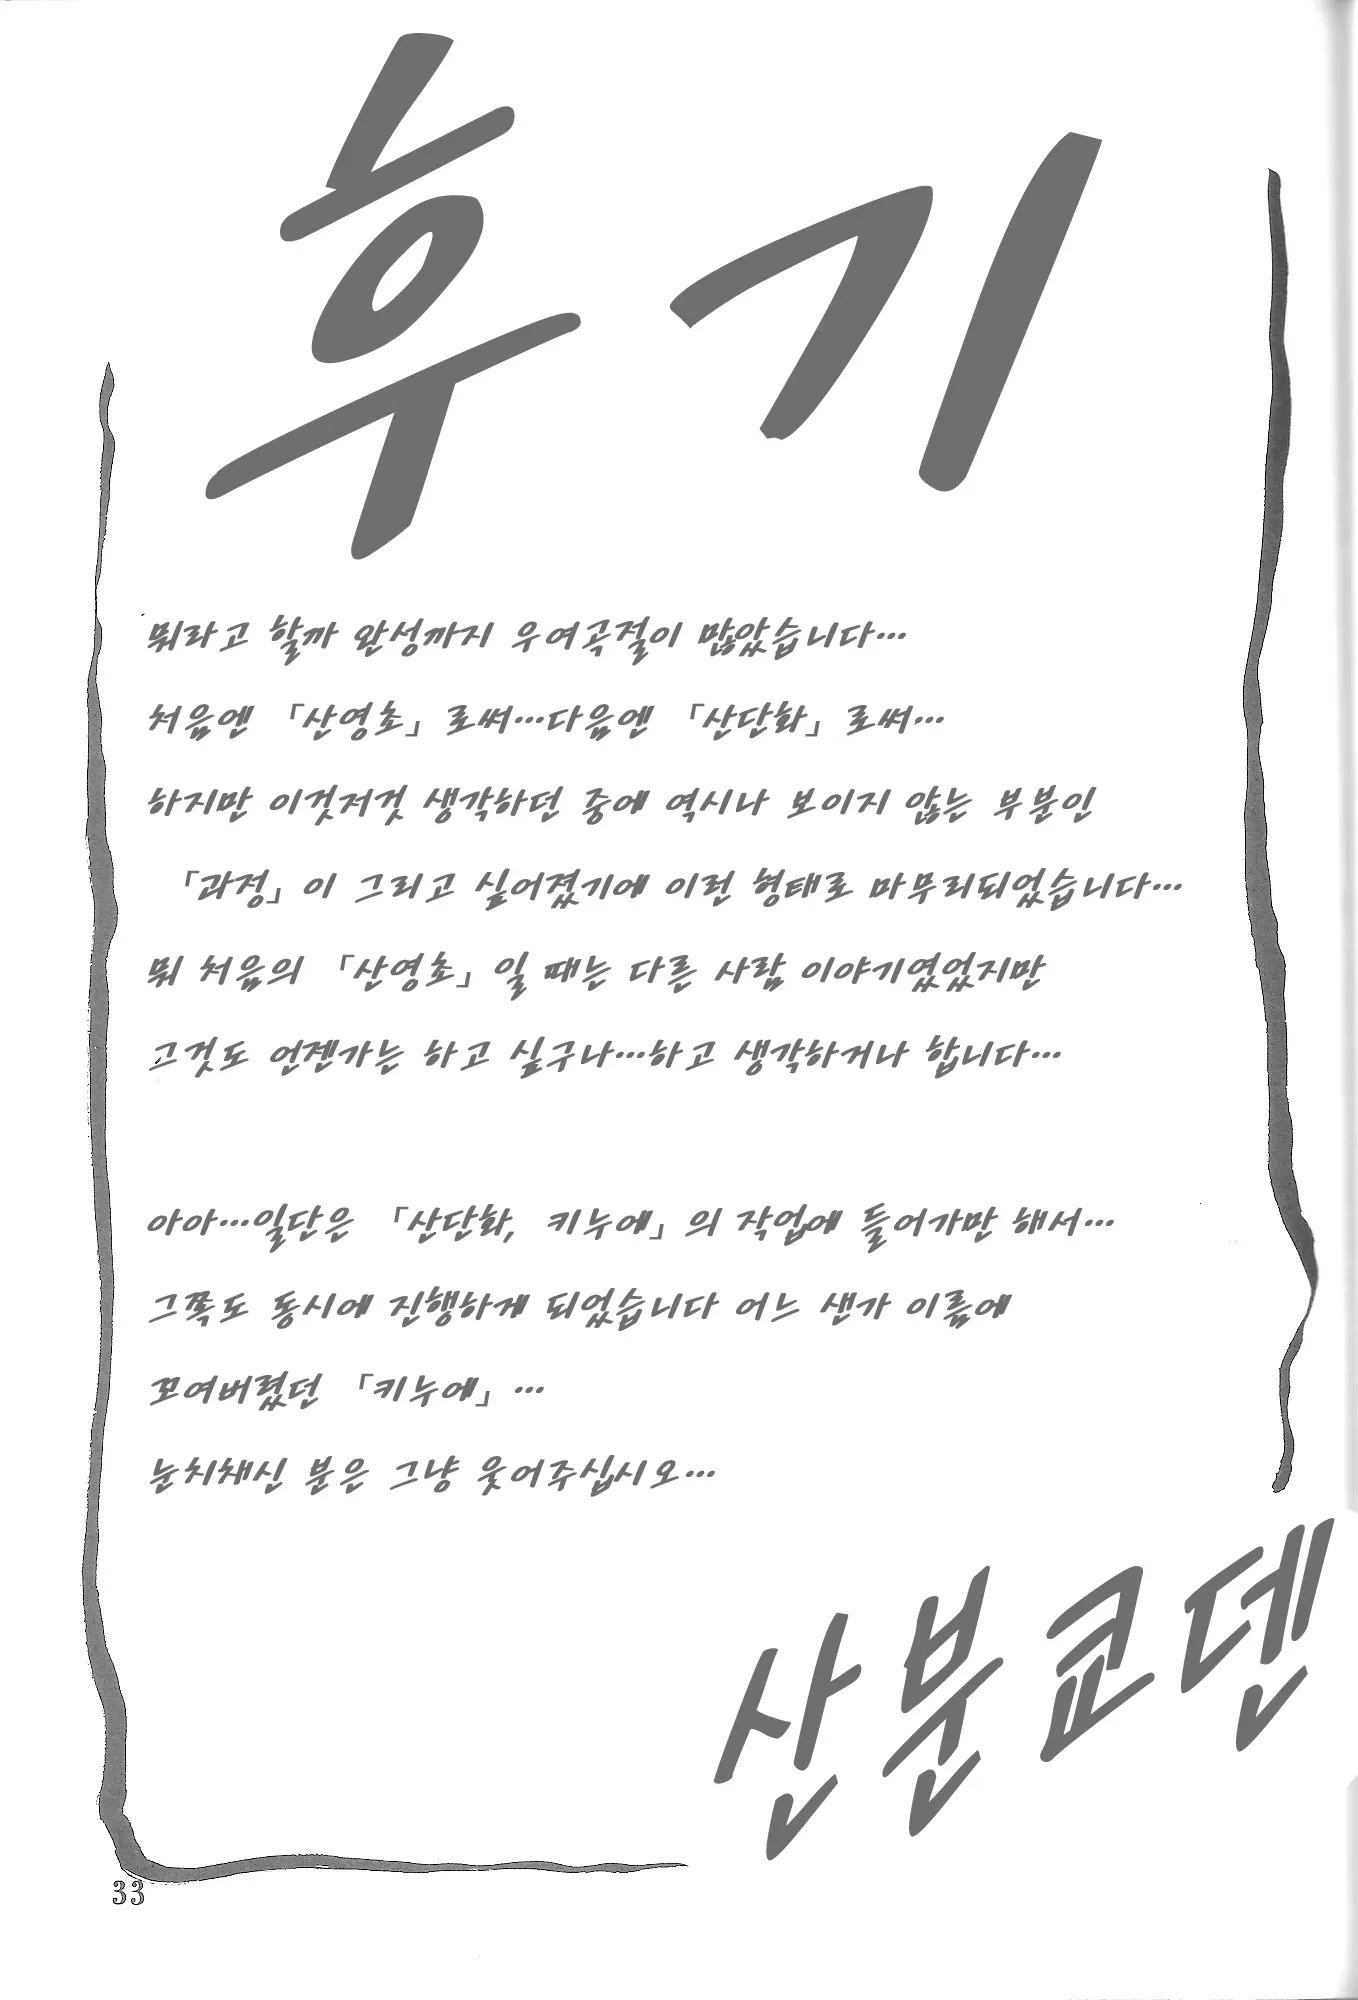 후기
뭐라고 할까 완성까지 우여곡절이 많았습니다…
처음엔 「산영초」로써…다음엔 「산단화」로써…
하지만 이것저것 생각하던 중에 역시나 보이지 않는 부분인
「과정」이 그리고 싶어졌기에 이런 형태로 마무리되었습니다…
뭐 처음의 「산영초」일 때는 다른 사람 이야기였었지만
그것도 언젠가는 하고 싶구나…하고 생각하거나 합니다…
아아…일단은 「산단화, 키누에」의 작업에 들어가만 해서…
그쪽도 동시에 진행하게 되었습니다 어느 샌가 이름에
꼬여버렸던 「키누에」…
눈치채신 분은 그냥 웃어주십시오…
산분쿄덴
33